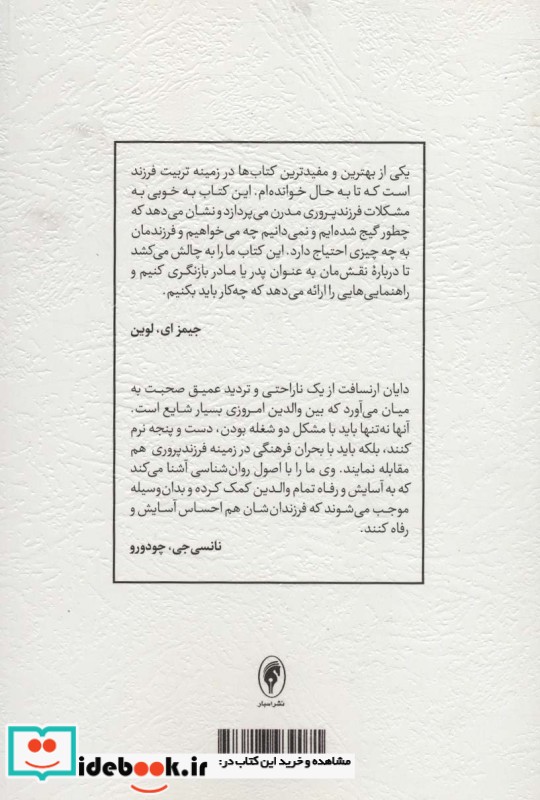 یکی از بهترین و مفیدترین کتاب‌ها در زمینه تربیت فرزند
است که تا به حال خوانده‌ام. این کتاب به خوبی به
مشکلات فرزندپروری مدرن می‌پردازد و نشان می‌دهد که
چطور گیج شده‌ایم و نمی‌دانیم چه می‌خواهیم و فرزندمان
به چه چیزی احتیاج دارد. این کتاب ما را به چالش می‌کشد
تا دربارهٔ نقش‌مان به عنوان پدر یا مادر بازنگری کنیم و
راهنمایی‌هایی را ارائه می‌دهد که چه‌کار باید بکنیم.
جیمز ای، لوین
دایان ارنسافت از یک ناراحتی و تردید عمیق صحبت به
میان می‌آورد که بین والدین امروزی بسیار شایع است.
آنها نه‌تنها باید با مشکل دو شغله بودن، دست و پنجه نرم
کنند، بلکه باید با بحران فرهنگی در زمینه فرزندپروری هم
مقابله نمایند. وی ما را با اصول روان‌شناسی آشنا می‌کند
که به آسایش و رفاه تمام والدین کمک کرده و بدان‌وسیله
موجب می‌شوند که فرزندان‌شان هم احساس آسایش و
رفاه کنند.
نانسی‌جی، چودورو
نشر اسبار
مشاهده و خرید این کتاب در:
idebook.ir